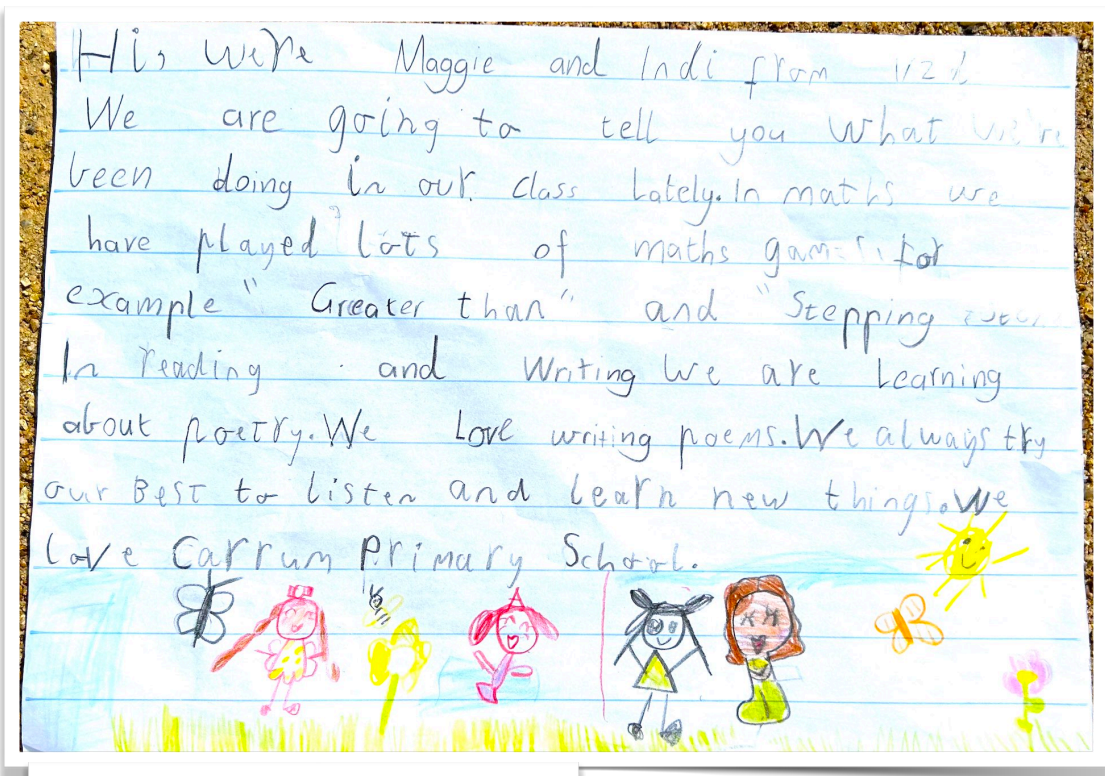 Hi, we're Maggie and Indi from
We are going to tell you what we're
been doing in our class lately. In maths we
have played lots of maths games. for
example "Greater than" and "Stepping
In reading and writing we are learning
about poetry. We love writing poems. We always try
our Best to listen and learn new things. We
love Carrum Primary School.